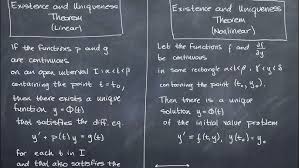 Existence and Uniqueness
Theorem
(Linear)
If the functions p and g
are continuous
on an open interval I: α<t<β
containing the point t=t₀,
then there exists a unique
function y=Φ(t)
that satisfies the diff. eq.
y'+p(t)y=g(t)
for each t in I
and that also satisfies the
Existence and Uniqueness
Theorem
(Nonlinear)
Let the functions f and ∂f/∂y
be continuous
in some rectangle α<t<β, γ<y<δ
containing the point (t₀, y₀).
Then there is a unique
solution y=Φ(t)
of the initial value problem
y'=f(t,y), y(t₀)=y₀